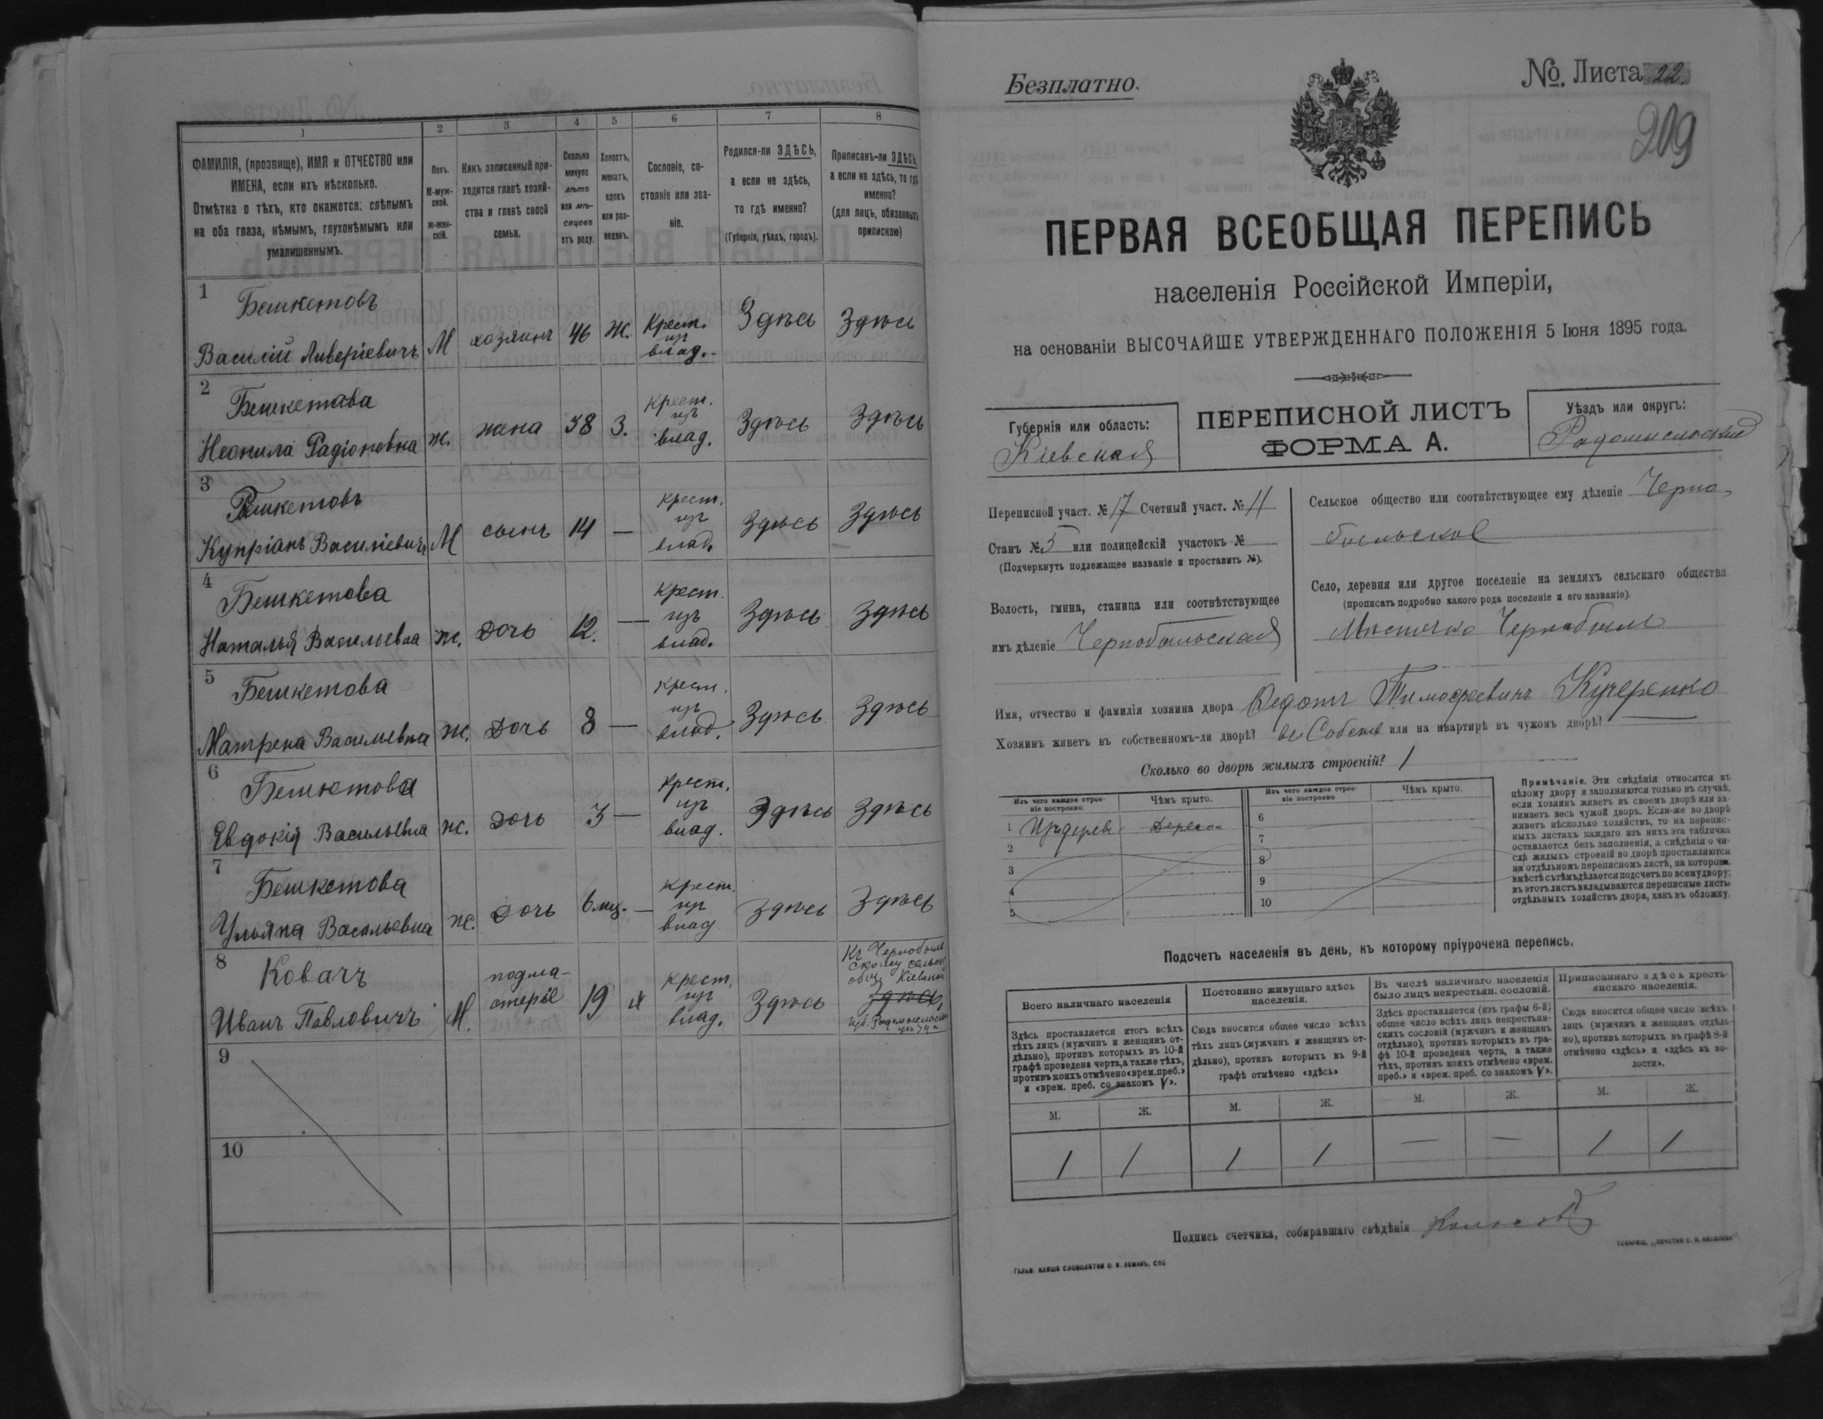 1
2
3
4
5
6
7
8
ФАМИЛІЯ, (прозвище), ИМЯ и ОТЧЕСТВО или
ИМЕНА, если ихъ нѣсколько.
Отмѣтка о тѣхъ, кто окажется: слѣпымъ
на оба глаза, нѣмымъ, глухонѣмымъ или
умалишеннымъ.
Полъ.
М-муж-
ской.
Ж-жен-
скій.
Какъ записанный при-
ходится главѣ хозяй-
ства и главѣ своей
семьи.
Сколько
минуло
лѣтъ
или мѣ-
сяцевъ
отъ роду.
Холостъ,
женатъ,
вдовъ
или раз-
веденъ.
Сословіе, со-
стояніе или зва-
ніе.
Родился-ли ЗДѢСЬ,
а если не здѣсь,
то гдѣ именно?
(Губернія, уѣздъ, городъ).
Приписанъ-ли ЗДѢСЬ,
а если не здѣсь, то гдѣ
именно?
(для лицъ, обязанныхъ
припискою)
1
Бешкетовъ
Василій Ливеріевичъ М хозяинъ 46 Ж. Крест. изъ влад. Здѣсь Здѣсь
2
Бешкетова
Неонила Радіоновна ж. жена 38 З. крест. изъ влад. Здѣсь Здѣсь
3
Бешкетовъ
Купріанъ Василіевичъ М сынъ 14 — крест. изъ влад. Здѣсь Здѣсь
4
Бешкетова
Наталья Васильевна ж. дочь 12. — крест. изъ влад. Здѣсь Здѣсь
5
Бешкетова
Матрена Васильевна ж. дочь 8 — крест. изъ влад. Здѣсь Здѣсь
6
Бешкетова
Евдокія Васильевна ж. дочь 3 — крест. изъ влад. Здѣсь Здѣсь
7
Бешкетова
Ульяна Васильевна ж. дочь 6 мц. — крест. изъ влад Здѣсь Здѣсь
8
Ковачъ
Иванъ Павловичъ М. 19 х крест. изъ влад. Здѣсь
Къ Чернобыль
скому сельск
общ. Кіевской
Здѣсь,
губ. Радомысльск
9
10
Безплатно.
№ Листа 22.
209
ПЕРВАЯ ВСЕОБЩАЯ ПЕРЕПИСЬ
населенія Россійской Имперіи,
на основаніи ВЫСОЧАЙШЕ УТВЕРЖДЕННАГО ПОЛОЖЕНІЯ 5 Іюня 1895 года.
Губернія или область:
Кіевская
ПЕРЕПИСНОЙ ЛИСТЪ
ФОРМА А.
Уѣздъ или округъ:
Радомысльскій
Переписной участ. № 17 Счетный участ. № 11
Станъ № 5 или полицейскій участокъ №
(Подчеркнуть подлежащее названіе и проставить №).
Волость, гмина, станица или соотвѣтствующее
имъ дѣленіе Чернобыльская
Сельское общество или соотвѣтствующее ему дѣленіе Черно-
быльское
Село, деревня или другое поселеніе на земляхъ сельскаго общества
(прописать подробно какого рода поселеніе и его названіе).
Мѣстечко Чернобыль
Имя, отчество и фамилія хозяина двора Федотъ Тимофеевичъ Кучеренко
Хозяинъ живетъ въ собственномъ-ли дворѣ? или на квартирѣ въ чужомъ дворѣ?
Сколько во дворѣ жилыхъ строеній? 1
Изъ чего каждое строе-
ніе построено
Чѣмъ крыто.
Изъ чего каждое строе-
ніе построено
Чѣмъ крыто.
1 Изъ дерев Дерево
2
3
4
5
6
7
8
9
10
Примѣчаніе. Эти свѣдѣнія относятся къ
цѣлому двору и заполняются только въ случаѣ,
если хозяинъ живетъ въ своемъ дворѣ или за-
нимаетъ весь чужой дворъ. Если-же во дворѣ
живетъ нѣсколько хозяйствъ, то на перепис-
ныхъ листахъ каждаго изъ нихъ эта табличка
оставляется безъ заполненія, а свѣдѣнія о чи-
слѣ жилыхъ строеній во дворѣ проставляются
на отдѣльномъ переписномъ листѣ, на которомъ
вмѣстѣ съ тѣмъ дѣлается подсчетъ по всему двору;
въ этотъ листъ вкладываются переписные листы
отдѣльныхъ хозяйствъ двора, какъ въ обложку.
Подсчетъ населенія въ день, къ которому пріурочена перепись.
Всего наличнаго населенія
Постоянно живущаго здѣсь
населенія.
Въ числѣ наличнаго населенія
было лицъ некрестьян. сословій.
Приписаннаго здѣсь кресть-
янскаго населенія.
Здѣсь проставляется итогъ всѣхъ
тѣхъ лицъ (мужчинъ и женщинъ от-
дѣльно), противъ которыхъ въ 10-й
графѣ проведена черта, а также тѣхъ,
противъ коихъ отмѣчено «врем. преб.»
и «врем. преб. со знакомъ V».
Сюда вносится общее число всѣхъ
тѣхъ лицъ (мужчинъ и женщинъ от-
дѣльно), противъ которыхъ въ 9-й
графѣ отмѣчено «здѣсь»
Здѣсь проставляется (изъ графы 6-й)
общее число всѣхъ лицъ некрестьян-
скихъ сословій (мужчинъ и женщинъ
отдѣльно), противъ которыхъ въ гра-
фѣ 10-й проведена черта, а также
тѣхъ, противъ коихъ отмѣчено «врем.
преб.» и «врем. преб. со знакомъ V».
Сюда вносится общее число всѣхъ
лицъ (мужчинъ и женщинъ отдѣль-
но), противъ которыхъ въ графѣ 8-й
отмѣчено «здѣсь» и «здѣсь въ во-
лости».
М. Ж. М. Ж. М. Ж. М. Ж.
1 1 1 1 — — 1 1
Подпись счетчика, собиравшаго свѣдѣнія